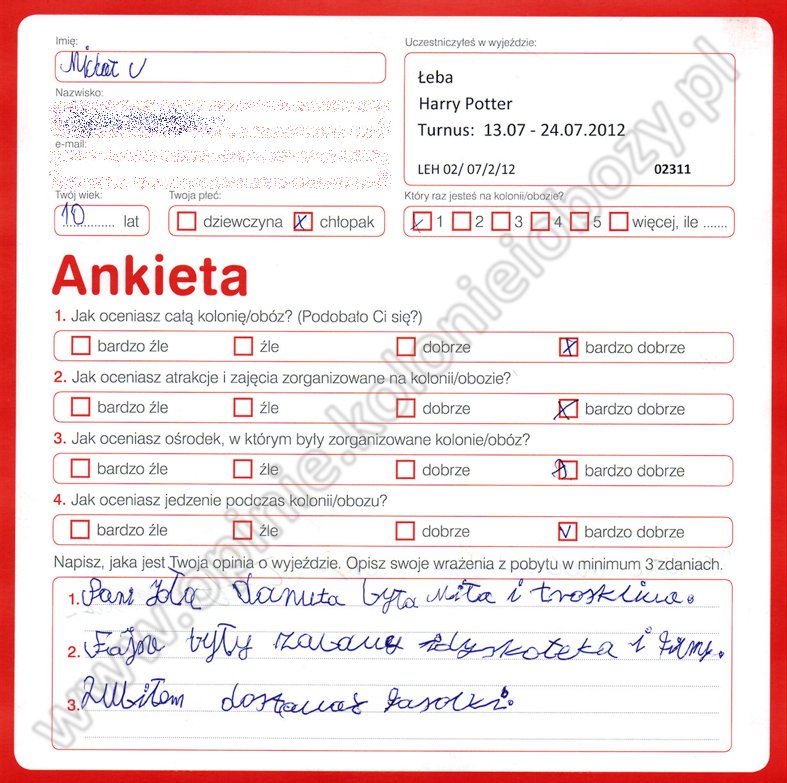 Imię:
Uczestniczyłeś w wyjeździe:
Michał
Łeba
Harry Potter
Turnus: 13.07 - 24.07.2012
LEH 02/ 07/2/12 02311
Nazwisko:
e-mail:
Twój wiek:
Twoja płeć:
Który raz jesteś na kolonii/obozie?
10 lat
dziewczyna chłopak
1 2 3 4 5 więcej, ile .......
Ankieta
1. Jak oceniasz całą kolonię/obóz? (Podobało Ci się?)
bardzo źle źle dobrze bardzo dobrze
2. Jak oceniasz atrakcje i zajęcia zorganizowane na kolonii/obozie?
bardzo źle źle dobrze bardzo dobrze
3. Jak oceniasz ośrodek, w którym były zorganizowane kolonie/obóz?
bardzo źle źle dobrze bardzo dobrze
4. Jak oceniasz jedzenie podczas kolonii/obozu?
bardzo źle źle dobrze bardzo dobrze
Napisz, jaka jest Twoja opinia o wyjeździe. Opisz swoje wrażenia z pobytu w minimum 3 zdaniach.
1. Pani Danuta była miła i
2. były dyskoteka i
3.
www.opinie.kolonieiobozy.pl